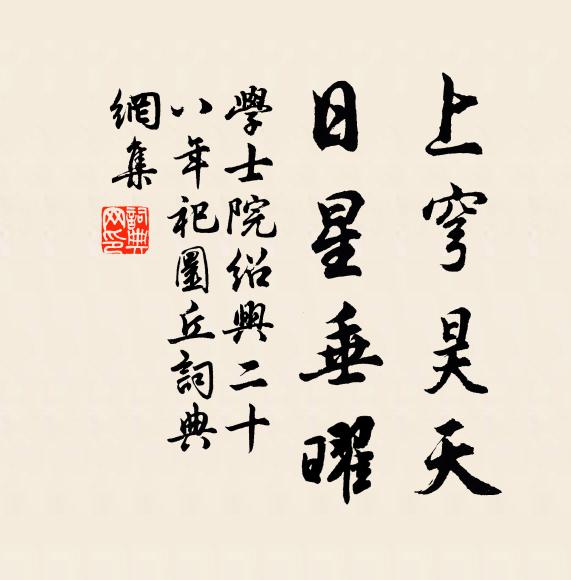 上穹昊天
日星垂曜
學士院紹興二十
八年祀圜丘詞典
網集
詞典網印